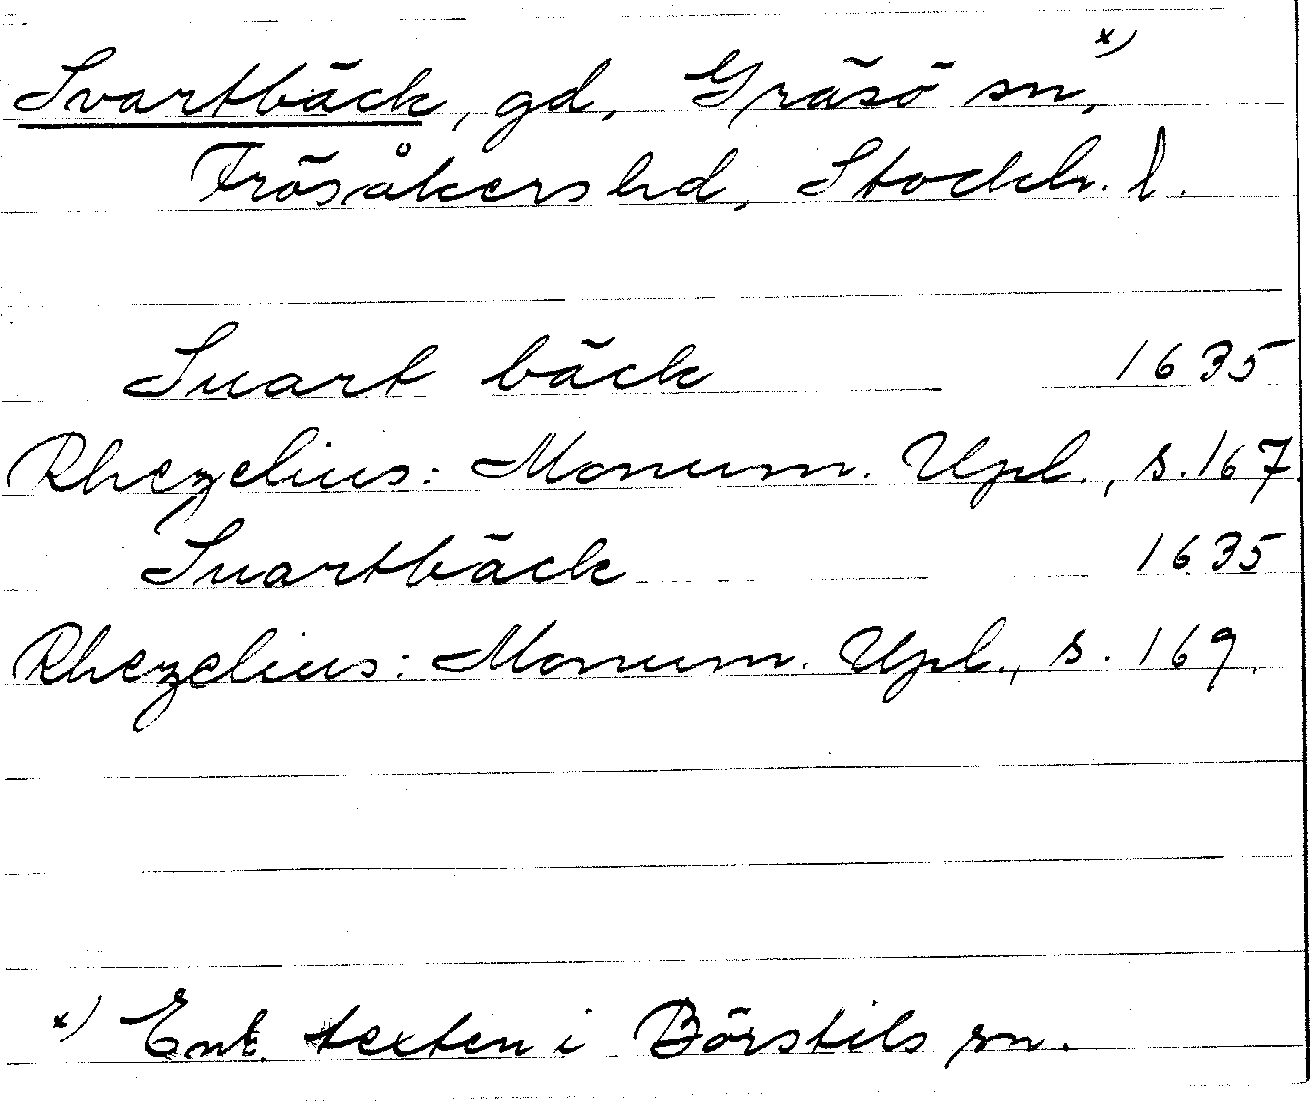 Svartbäck, gd, Gräsö sn, x)
Frösåkers hd, Stockh. l.
Suart bäck 1635
Rhezelius: Monum. Upl., s. 167
Suartbäck 1635
Rhezelius: Monum. Upl., s. 169.
x) Enl. texten i Börstils sn.